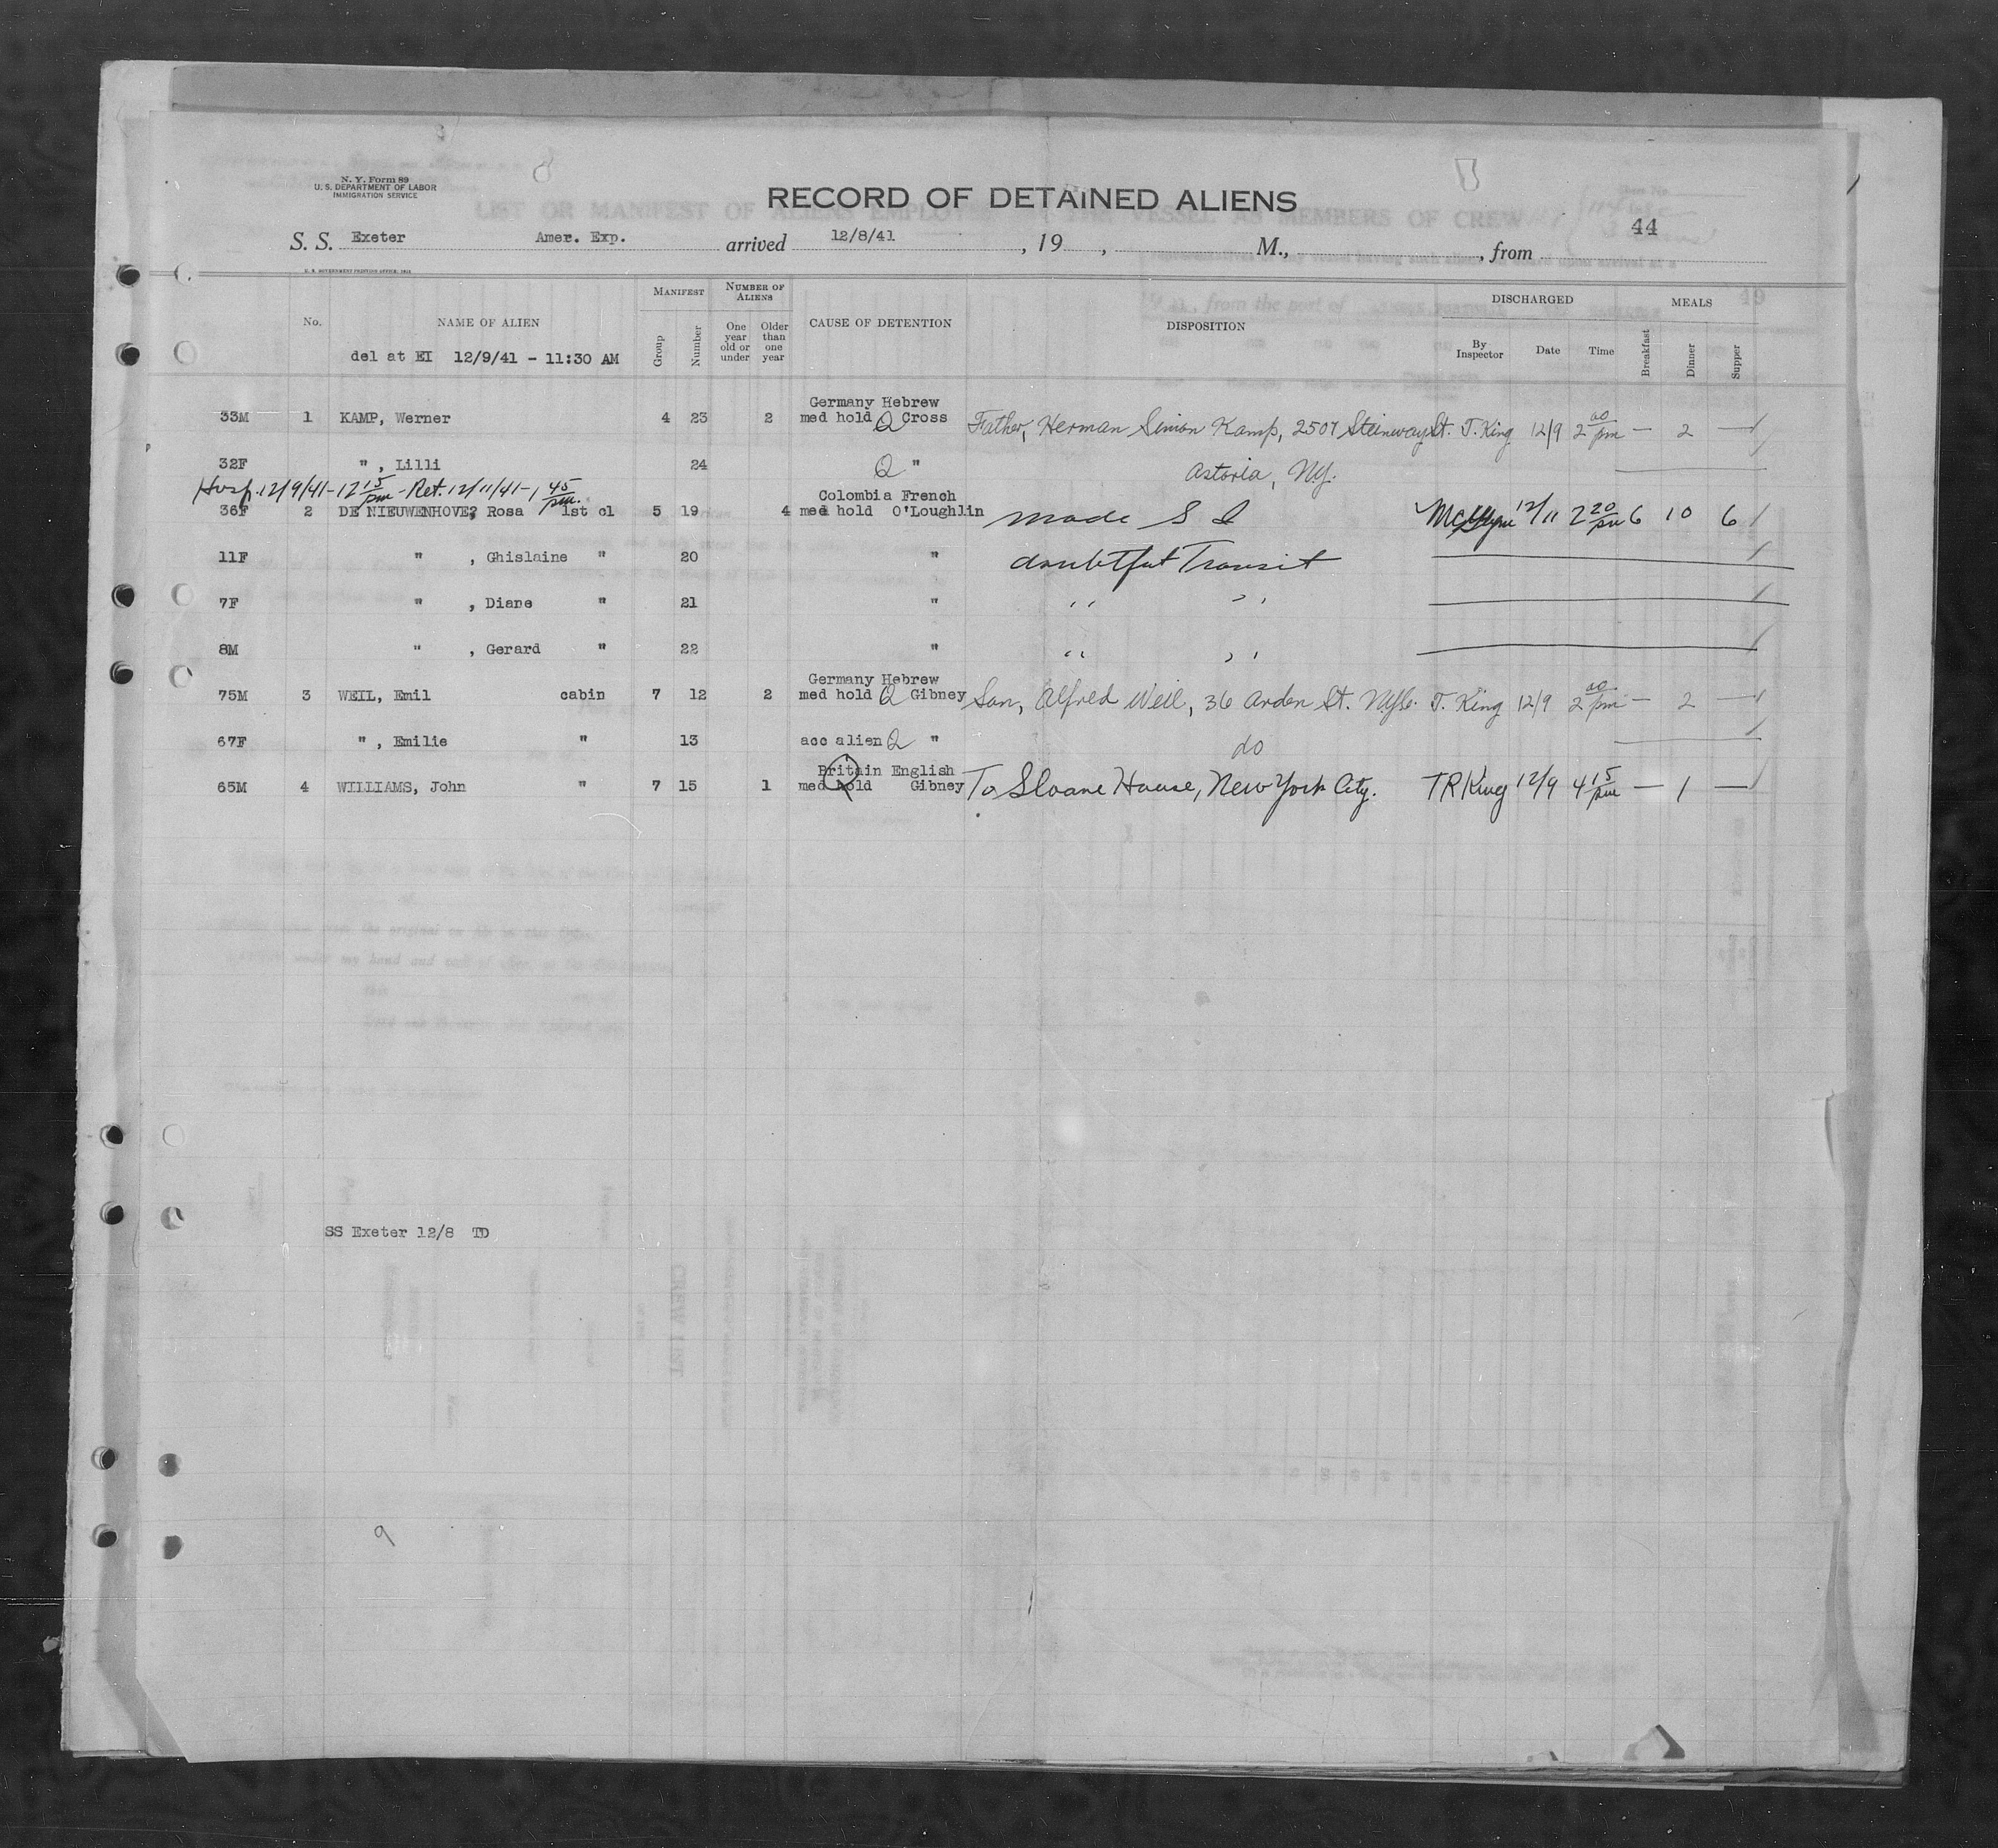 N. Y. Form 89
U. S. DEPARTMENT OF LABOR
IMMIGRATION SERVICE
RECORD OF DETAINED ALIENS
44
S. S. Exeter Amer. Exp. arrived 12/8/41, 19 , M., , from
U. S. GOVERNMENT PRINTING OFFICE
No. NAME OF ALIEN MANIFEST Group Number NUMBER OF ALIENS One year old or under Older than one year CAUSE OF DETENTION DISPOSITION DISCHARGED By Inspector Date Time MEALS Breakfast Dinner Supper
del at EI 12/9/41 - 11:30 AM
Germany Hebrew
33M 1 KAMP, Werner 4 23 2 med hold Q Cross Father, Herman Simon Kamp, 2507 Steinway St. T. King 12/9 2 00 pm — 2 —
32F " , Lilli 24 Q " Astoria, N.Y.
Hosp. 12/9/41 - 12 15 pm - Ret. 12/11/41 - 1 45 pm.
Colombia French
36F 2 DE NIEUWENHOVE, Rosa 1st cl 5 19 4 med hold O'Loughlin made S I 12/11 2 20 pm 6 10 6
11F " , Ghislaine " 20 " doubtful Transit
7F " , Diane " 21 " " "
8M " , Gerard " 22 " " "
Germany Hebrew
75M 3 WEIL, Emil cabin 7 12 2 med hold Q Gibney Son, Alfred Weil, 36 Arden St. T. King 12/9 2 00 pm — 2 —
67F " , Emilie " 13 acc alien Q " do
Britain English
65M 4 WILLIAMS, John " 7 15 1 med hold Q Gibney To Sloane House, New York City. TR King 12/9 4 15 pm — 1 —
SS Exeter 12/8 TD
9